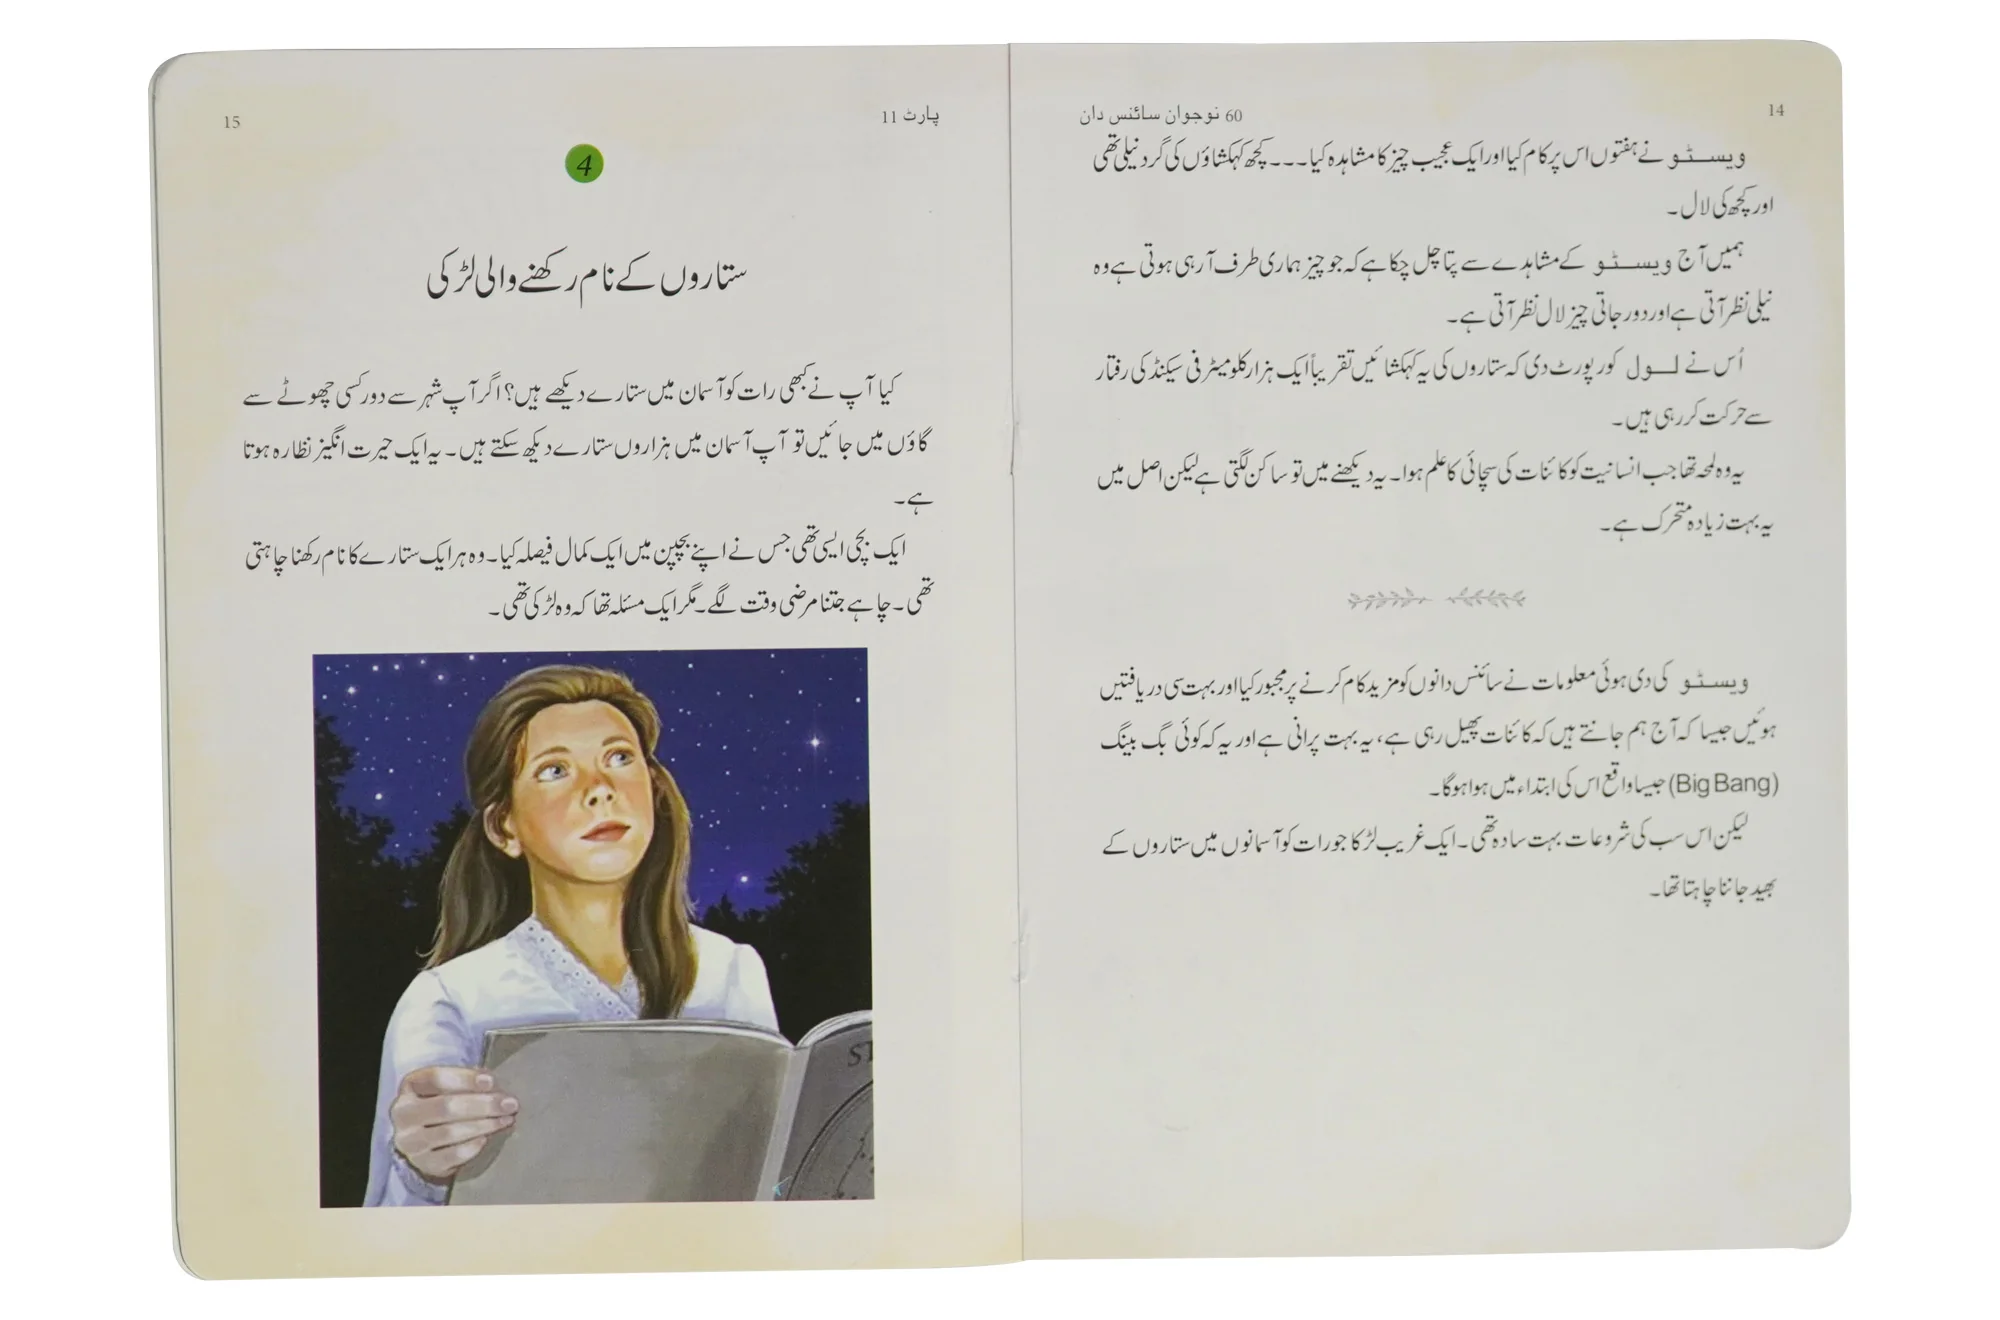 14
60 نوجوان سائنس دان
ویسٹو نے ہفتوں اس پر کام کیا اور ایک عجیب چیز کا مشاہدہ کیا۔۔۔ کچھ کہکشاؤں کی گرد نیلی تھی
اور کچھ کی لال۔
ہمیں آج ویسٹو کے مشاہدے سے پتا چل چکا ہے کہ جو چیز ہماری طرف آ رہی ہوتی ہے وہ
نیلی نظر آتی ہے اور دور جاتی چیز لال نظر آتی ہے۔
اُس نے لول کو رپورٹ دی کہ ستاروں کی یہ کہکشائیں تقریباً ایک ہزار کلومیٹر فی سیکنڈ کی رفتار
سے حرکت کر رہی ہیں۔
یہ وہ لمحہ تھا جب انسانیت کو کائنات کی سچائی کا علم ہوا۔ یہ دیکھنے میں تو ساکن لگتی ہے لیکن اصل میں
یہ بہت زیادہ متحرک ہے۔
ویسٹو کی دی ہوئی معلومات نے سائنس دانوں کو مزید کام کرنے پر مجبور کیا اور بہت سی دریافتیں
ہوئیں جیسا کہ آج ہم جانتے ہیں کہ کائنات پھیل رہی ہے، یہ بہت پرانی ہے اور یہ کہ کوئی بگ بینگ
(Big Bang) جیسا واقع اس کی ابتداء میں ہوا ہوگا۔
لیکن اس سب کی شروعات بہت سادہ تھی۔ ایک غریب لڑکا جو رات کو آسمانوں میں ستاروں کے
بھید جاننا چاہتا تھا۔
پارٹ 11
15
4
ستاروں کے نام رکھنے والی لڑکی
کیا آپ نے کبھی رات کو آسمان میں ستارے دیکھے ہیں؟ اگر آپ شہر سے دور کسی چھوٹے سے
گاؤں میں جائیں تو آپ آسمان میں ہزاروں ستارے دیکھ سکتے ہیں۔ یہ ایک حیرت انگیز نظارہ ہوتا
ہے۔
ایک بچی ایسی تھی جس نے اپنے بچپن میں ایک کمال فیصلہ کیا۔ وہ ہر ایک ستارے کا نام رکھنا چاہتی
تھی۔ چاہے جتنا مرضی وقت لگے۔ مگر ایک مسئلہ تھا کہ وہ لڑکی تھی۔